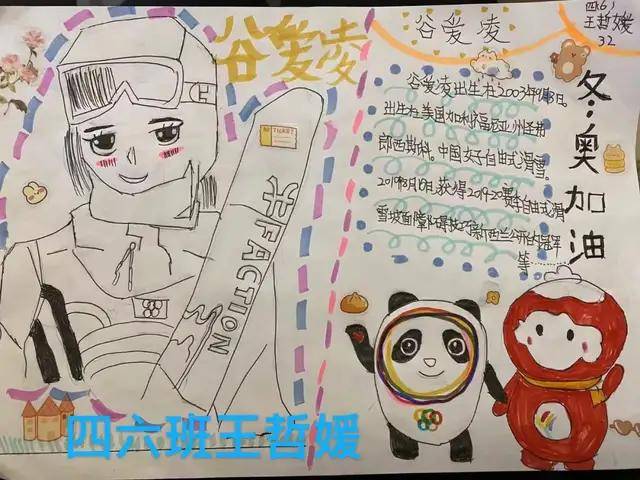 谷爱凌
谷爱凌
四(6)
王哲媛
32
谷爱凌出生在2003年9月3日。
出生在美国加利福尼亚州圣弗
郎西斯科。中国女子自由式滑雪。
2019年8月10日,获得2019-20赛季自由式滑
雪坡面障碍技巧新西兰公开的冠军
等
冬奥加油
TICKET
FACTION
四六班王哲媛